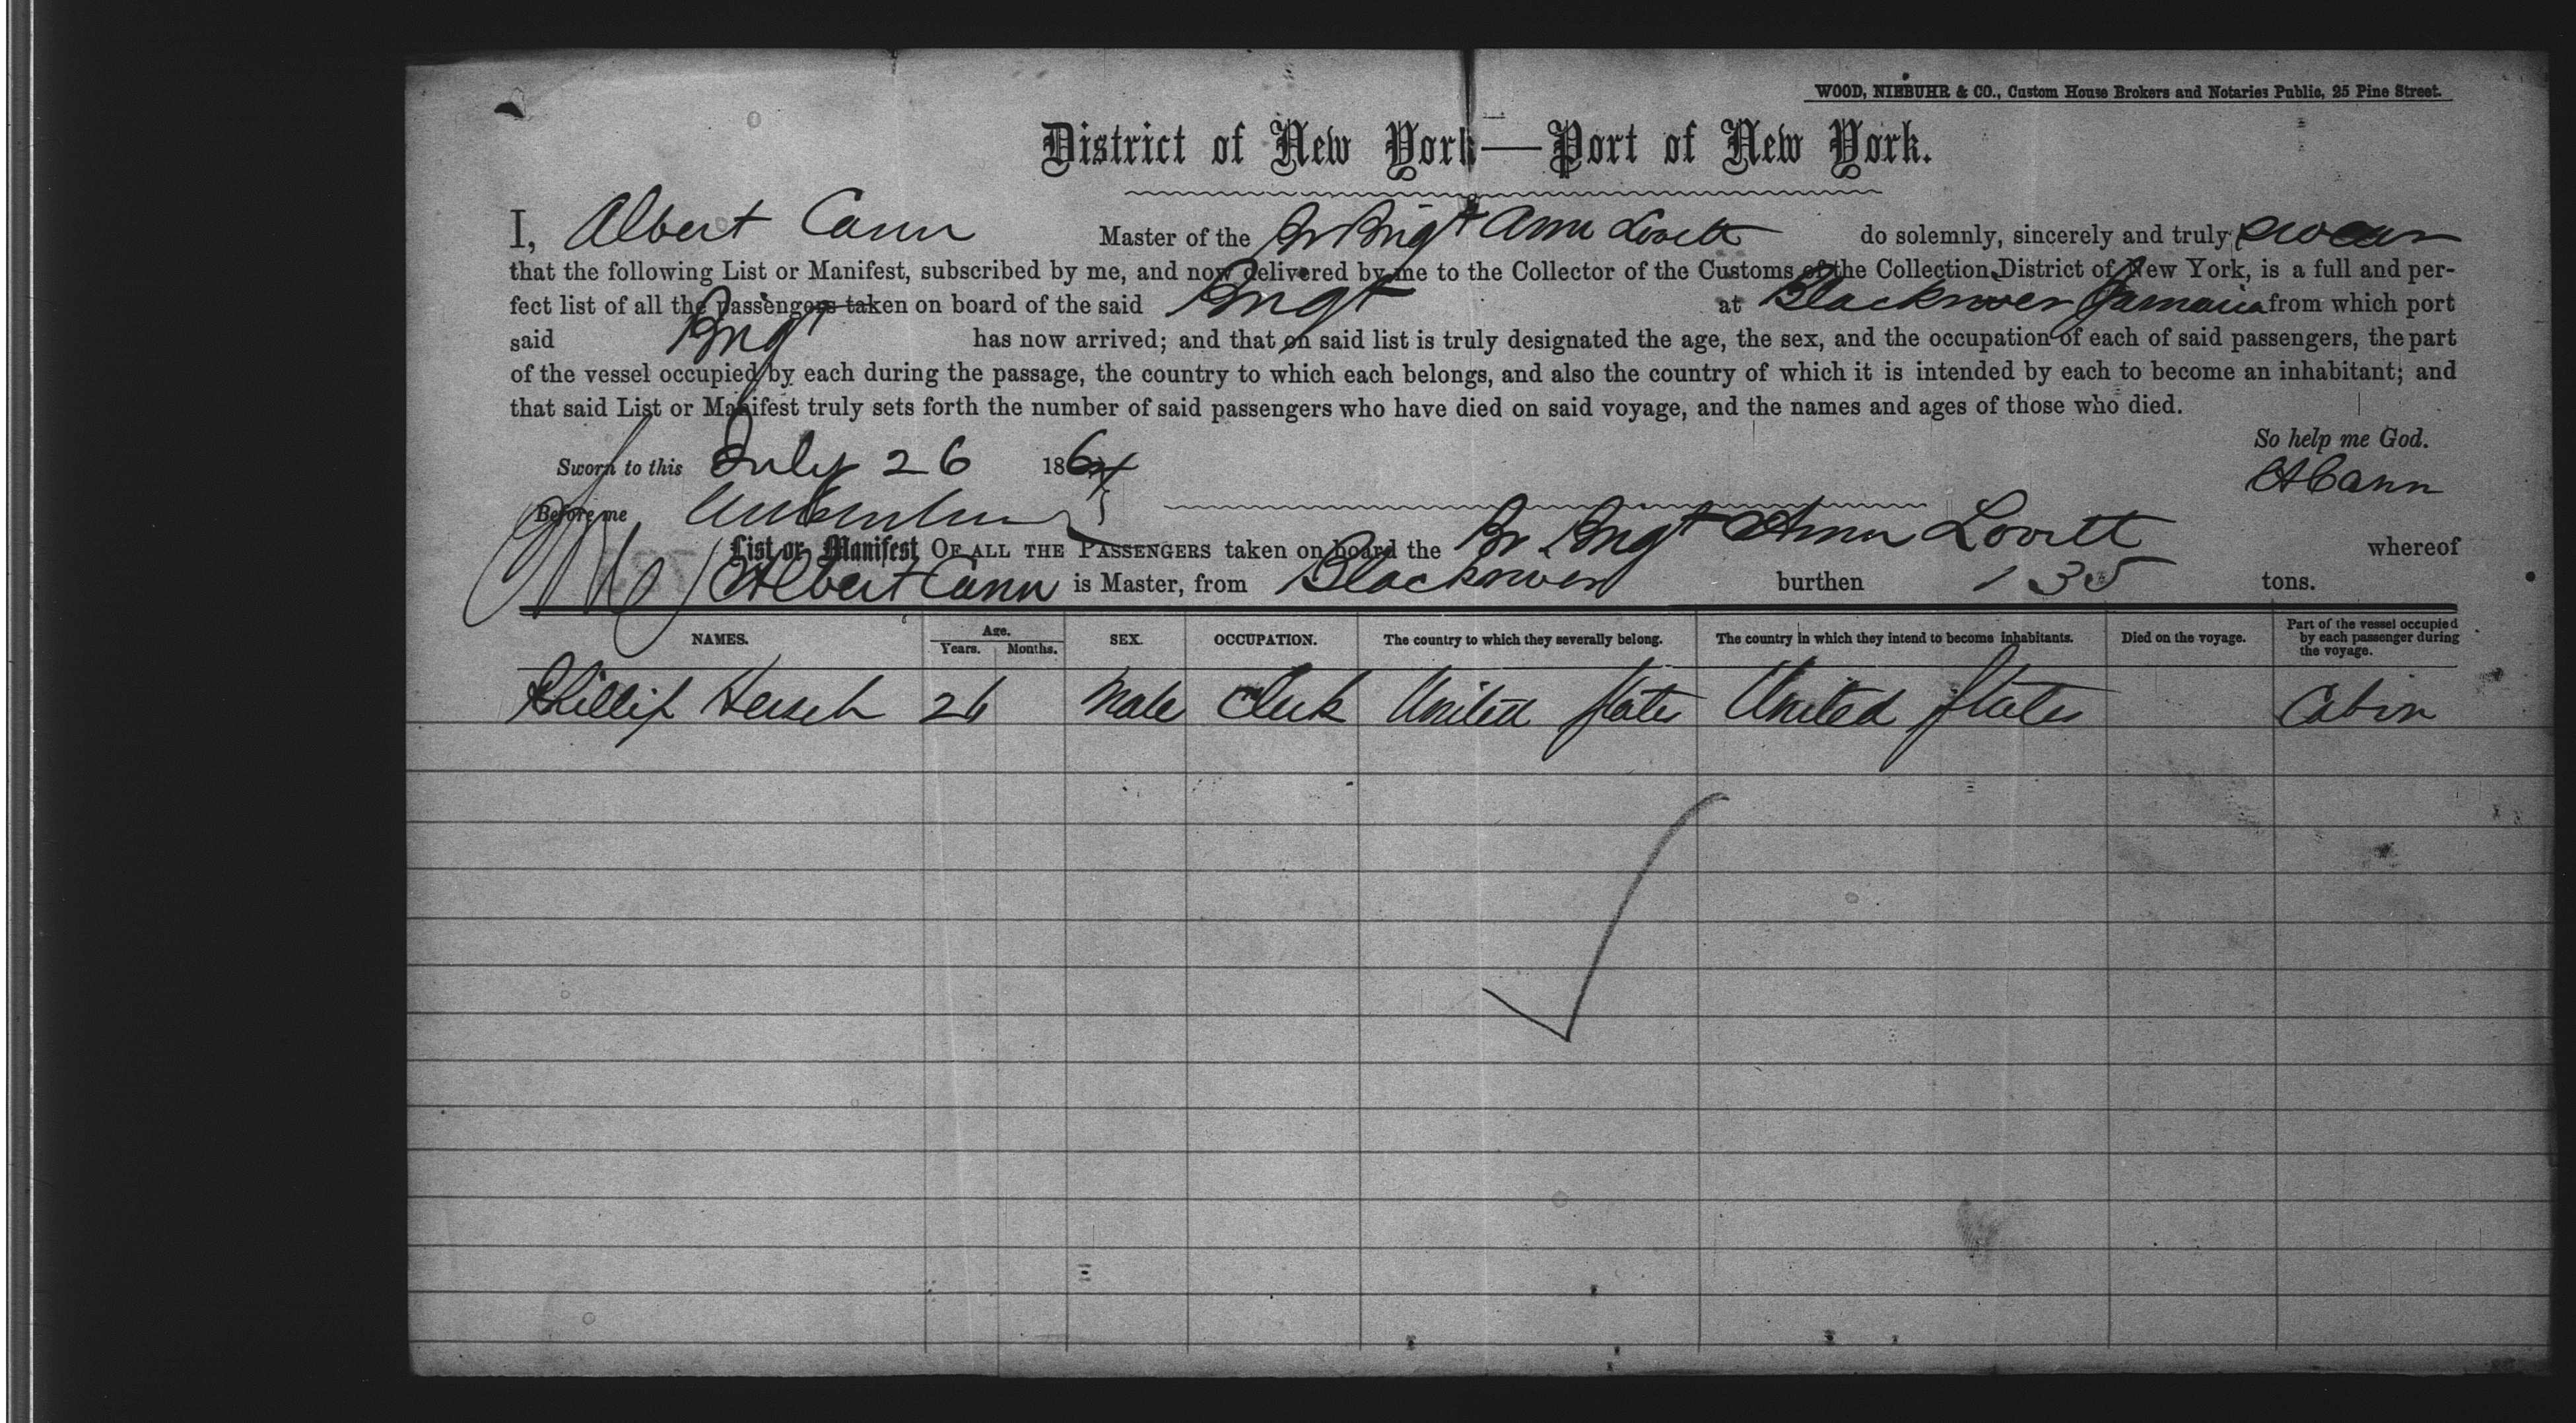 WOOD, NIEBUHR & CO., Custom House Brokers and Notaries Public, 25 Pine Street.
District of New York—Port of New York.
I, Albert Cann Master of the Br Brigt Ann Lovitt do solemnly, sincerely and truly swear
that the following List or Manifest, subscribed by me, and now delivered by me to the Collector of the Customs of the Collection District of New York, is a full and per-
fect list of all the passengers taken on board of the said Brigt at Blackriver Jamaica from which port
said Brigt has now arrived; and that on said list is truly designated the age, the sex, and the occupation of each of said passengers, the part
of the vessel occupied by each during the passage, the country to which each belongs, and also the country of which it is intended by each to become an inhabitant; and
that said List or Manifest truly sets forth the number of said passengers who have died on said voyage, and the names and ages of those who died.
So help me God.
Sworn to this July 26 1864
ACann
Before me
List or Manifest OF ALL THE PASSENGERS taken on board the Br Brigt Ann Lovitt whereof
Albert Cann is Master, from Blackriver burthen 135 tons.
NAMES. Age. Years. Months. SEX. OCCUPATION. The country to which they severally belong. The country in which they intend to become inhabitants. Died on the voyage. Part of the vessel occupied by each passenger during the voyage.
Phillip Hersch 26 Male Clerk United States United States Cabin